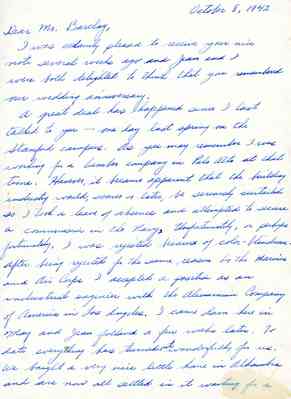 October 8, 1942
Dear Mr. Barclay,
I was extremely pleased to receive your nice
note several weeks ago and Jean and I
were both delighted to think that you remembered
our wedding anniversary.
A great deal has happened since I last
talked to you — one day last spring on the
Stanford campus. As you may remember I was
working for a lumber company in Palo Alto at that
time. However, it became apparent that the building
industry would, sooner or later, be seriously curtailed
so I took a leave of absence and attempted to secure
a commission in the Navy. Unfortunately, or perhaps
fortunately, I was rejected because of color-blindness.
After being rejected for the same reason by the Marines
and Air Corps I accepted a position as an
industrial engineer with the Aluminum Company
of America in Los Angeles. I came down here in
May and Jean followed a few weeks later. To
date everything has turned out wonderfully for us.
We bought a very nice little home in Alhambra
and are now all settled in it waiting for a